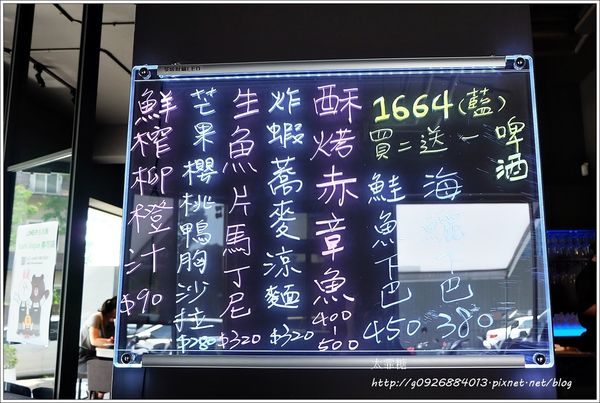 1664(藍)啤酒
買二送一
海鱺下巴
380
鮭魚下巴
450
酥烤赤章魚
400-500
炸蝦蕎麥涼麵
$320
生魚片馬丁尼
$320
芒果櫻桃鴨胸沙拉
$280
鮮榨柳橙汁
$90
大電撈
http://g0926884013.pixnet.net/blog